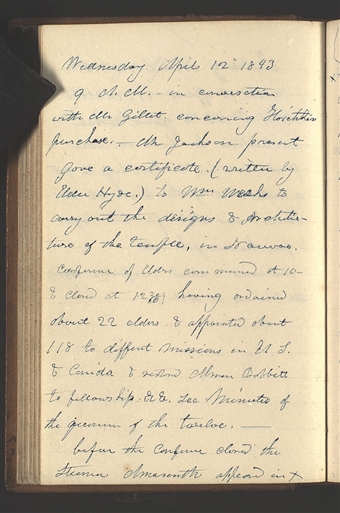 Wednesday April 12 1843
9 A.M. - in conversation
with Mr Gillet. concerning Hotchkiss
purchase. - Mr Jackson present
gave a certificate. (written by
Elder Hyde.) to Wm Weeks to
carry out the designs & Architec-
ture of the temple, in Nauvoo.
Conference of Elders commenced at 10-
& closed at 12 having ordained
about 22 elders. & appointed about
118 to diffent missions in U S.
& Canida & restord Almon Babbitt
to fellowship. &c. See Minutes of
the quorum of the twelve. —
before the Confernce closed the
Steamer Amaranth appeard in